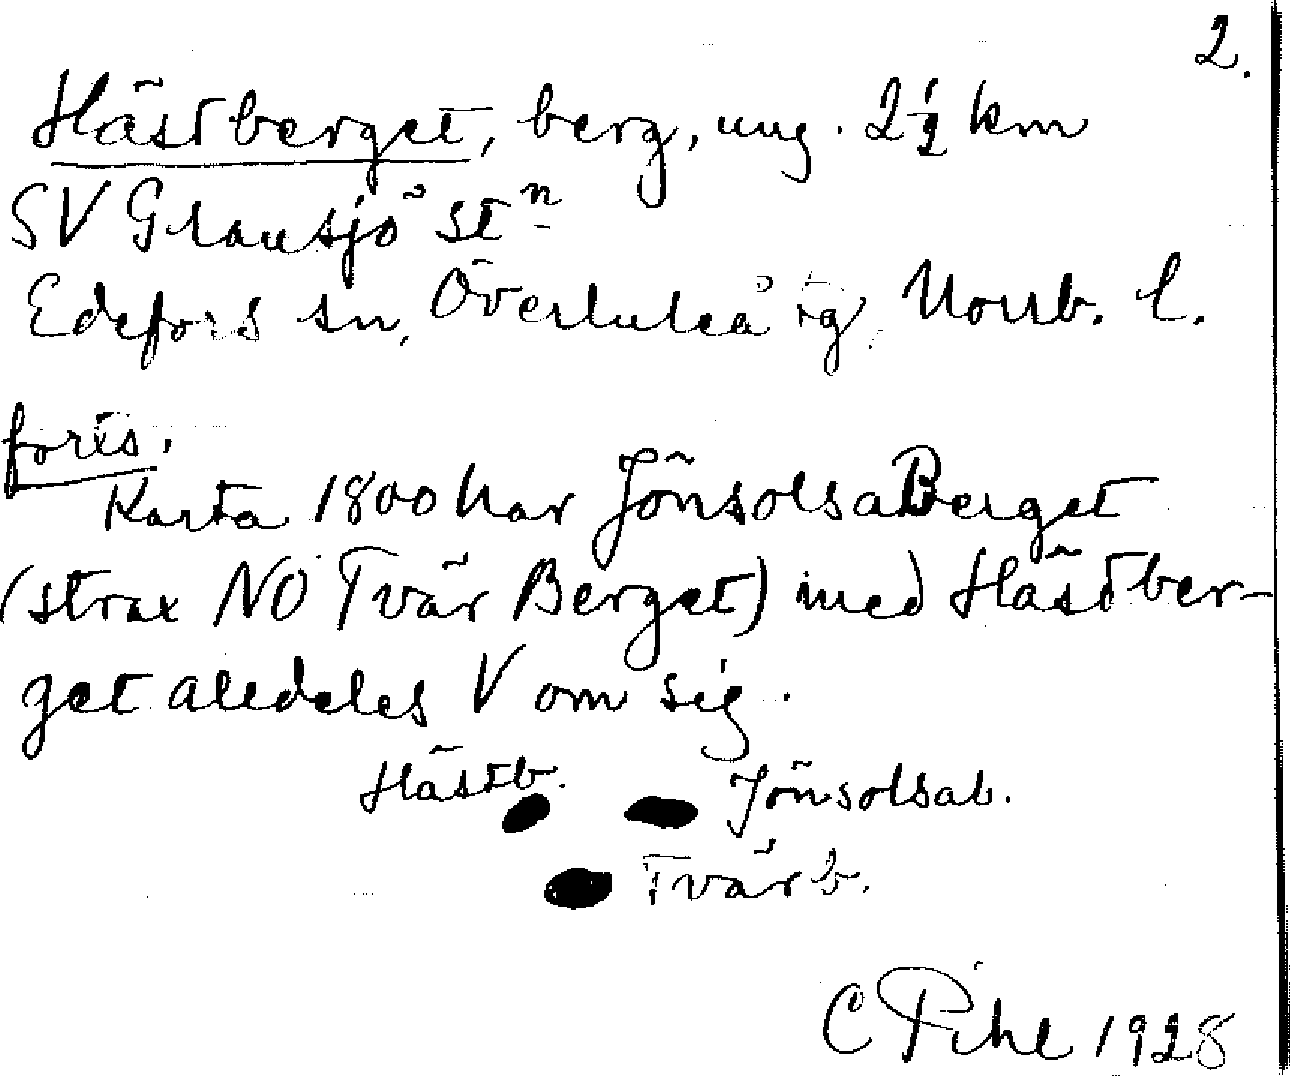 2.
Hästberget, berg, ung. 2½ km
SV Gransjö stn
Edefors sn, Överluleå tg, Norrb. l.
forts.
Karta 1800 har JönsolsaBerget
(strax NO Tvär Berget) med Hästber-
get alldeles V om sig.
Hästb. Jönsolsab.
Tvärb.
C Pihl 1928